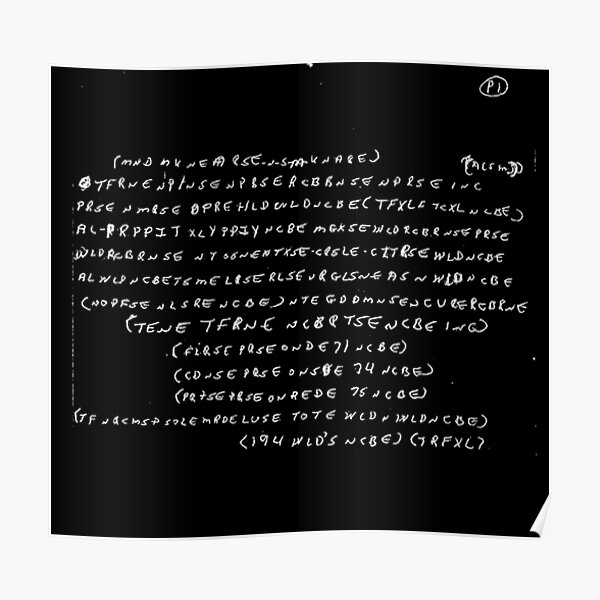 P1
(MND MKNEARSE-N-STAKNARE) (ACSM)
TFRNENPINSENPRSERCBRNSENPRSE INC
PRSE NMRSE OPREHLDWLDNCBE(TFXLF TCXL NCBE)
AL-PRPPIT XLYPPIYNCBE MGKSEWLDRCBRNSEPRSE
WLDRCBRNSE NTOSNENTXSE-CRSLE-CITRSEWLDNCBE
ALWLDNCBETSMELRSERLSEURGLSNEASNWLDNCBE
(NOPFSE NLSRENCBE)NTEGDDMNSENCURERCBRNE
(TENE TFRNE NCBRTSENCBEING)
(FLRSE PRSEONDE71NCBE)
(CDNSEPRSEONSDE 74 NCBE)
(PRTSEPRSEONREDE 75NCBE)
(TFNRCMSPSOLEMRDELUSE TOTEWLDNWLDNCBE)
(194 WLD'S NCBE)(TRFXL)